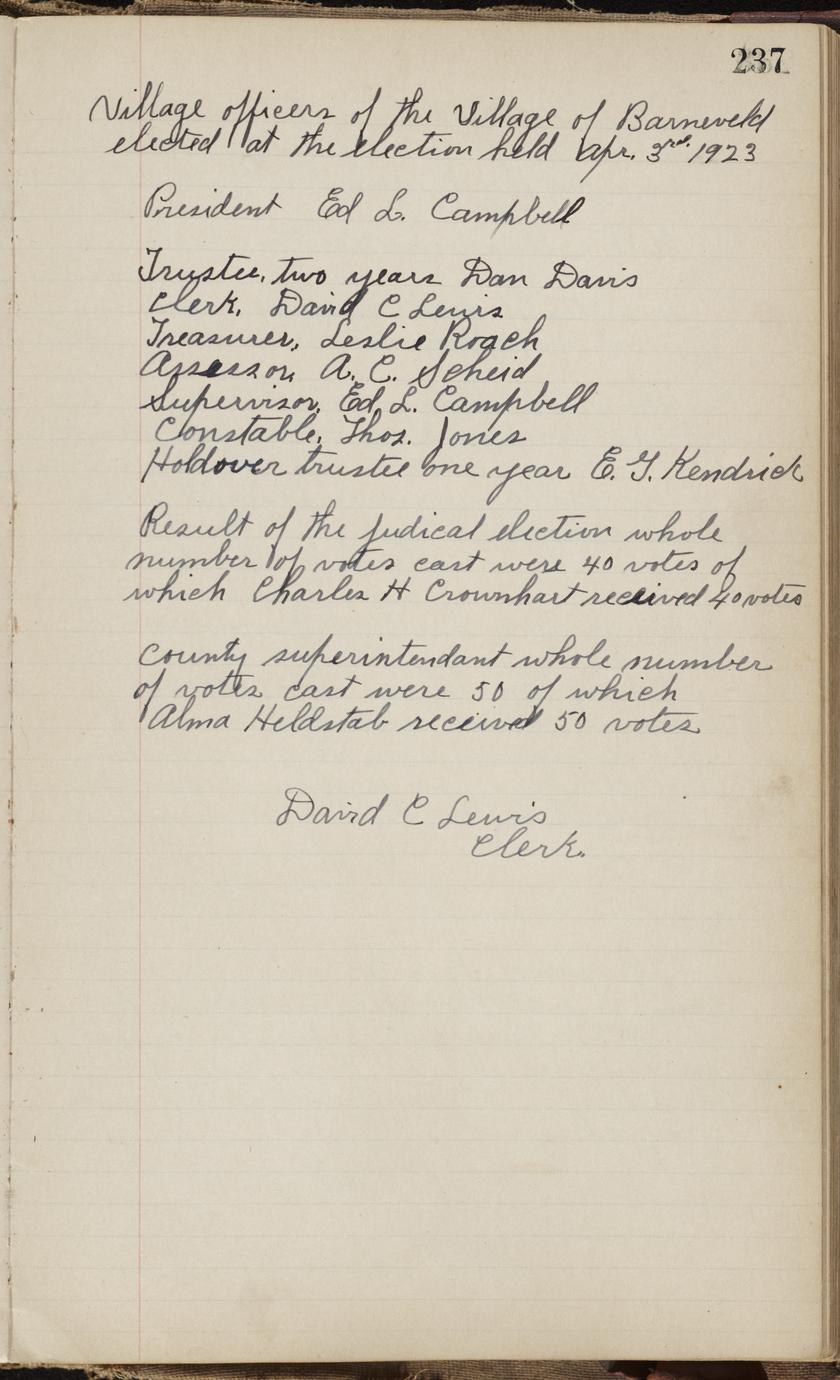 237
Village officers of the Village of Barneveld
elected at the election held Apr. 3rd. 1923
President Ed L. Campbell
Trustee, two years Dan Davis
Clerk, David C Lewis
Treasurer, Leslie Roach
Assessor, A. C. Scheid
Supervisor, Ed. L. Campbell
Constable, Thos. Jones
Holdover trustee one year E. G. Kendrick
Result of the judical election whole
number of votes cast were 40 votes of
which Charles H Crownhart received 40 votes
County superintendant whole number
of votes cast were 50 of which
Alma Heldstab received 50 votes
David C Lewis
Clerk.